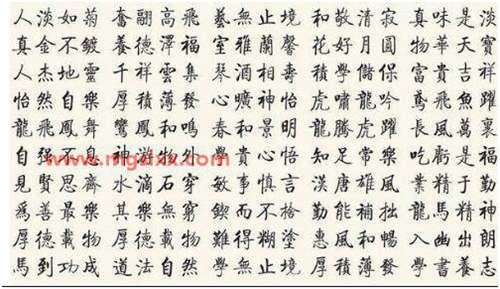 人淡如菊 奮翮高飛 藝無止境 和敬清寂 真味是淡
真金不鍍 養德澤福 室雅蘭馨 花好月圓 物華天寶
人杰地靈 千祥雲集 琴酒相壽 積學儲 富貴吉祥
怡然自樂 厚積薄發 心曠神怡 虎嘯龍吟 鳶飛魚躍
龍飛鳳舞 鸞鳳和鳴 春和景明 龍騰虎躍 長風萬裏
自強不息 神游物外 貴心悟 知足常樂 吃虧是福
見賢思齊 水滴石穿 敏事慎言 漢唐雄風 業精于勤
爲善最樂 其樂無窮 而不 勤能補拙 龍馬精神
厚德載物 厚德載物 難得糊塗 惠風和暢 入幽出朗
馬到功成 道法自然 學無止境 厚積薄發 學書養志